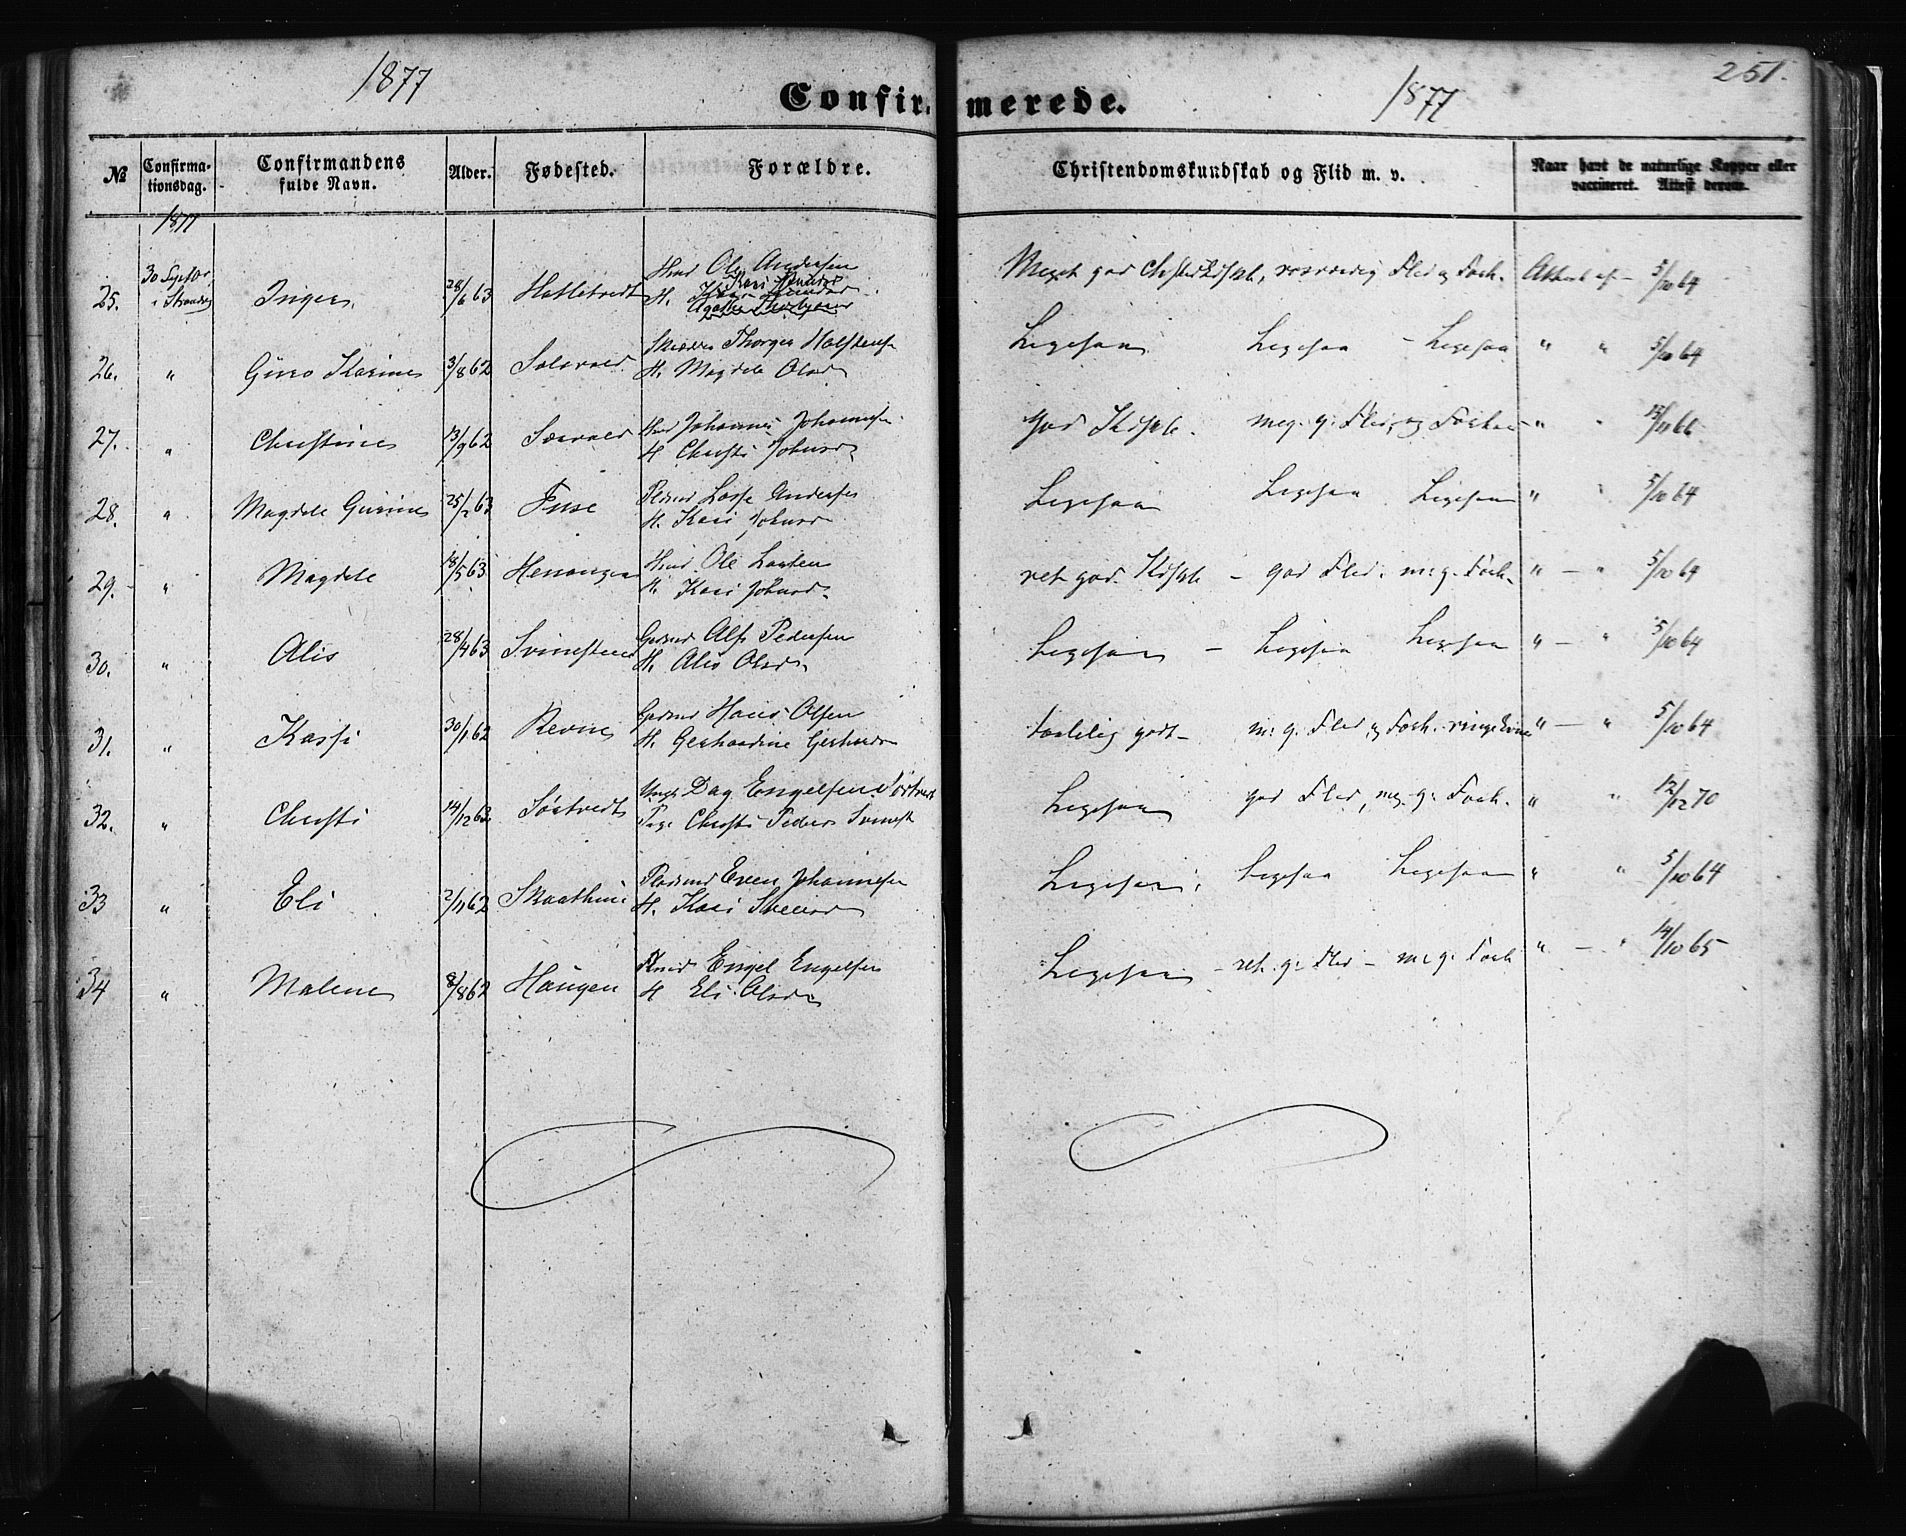 1877
Confirmerede.
1877
251.
№
Confirma-
tionsdag.
Confirmandens
fulde Navn.
Alder.
Fødested.
Forældre.
Christendomskundskab og Flid m. v.
Naar havt de naturlige Kopper eller
vaccineret. Attest derom.
1877
25. 30 Septbr i Strandvig Inger 28/6 63 Hatletvedt Hmd Ole Andersen
H. Kari
Meget god Flid og Forh. Attest af - 5/10 64
26. " Guro Karine 3/8 62 Solevold Thorger Halstens.
H. Magdele Olsd.
Ligesaa Ligesaa - Ligesaa " " 5/10 64
27. " Christine 13/9 62 Johannes Johannes.
H Christi Johnsd.
god Kdskb. meg. g. Flid, og Forhold " " 13/11 66
28. " Magdele Gurine 25/2 63 Fuse Lasse Anders.
H. Kari Johnsd.
Ligesaa Ligesaa Ligesaa " " 5/10 64
29. - " Magdele 18/5 63 Henangen Hmd. Ole Larsen
H. Kari Johnsd.
ret god. Kdskb - god Flid. m. g. Forh. " - " 5/10 64
30. " Alis 28/4 63 Svinesteen Grdmd Alf Pedersen
H. Alis Olsd.
Ligesaa - Ligesaa Ligesaa " - " 5/10 64
31. " Kassi 30/1 62 Revne Grdmd Hans Olsen
H. Gerhardine Gerhards.
taalelig godt - m. g. Flid og Forh. " - " 5/10 64
32. " Christi 14/12 62 Sörtvedt Ungk Dag Engelsen Sörtvedt
Pige Christi Peders. Svinest
Ligesaa god Flid, meg. g. Forh. " " 12/12 70
33 " Eli 2/11 62 Pladsmd Even Johannesen
H. Kari Sveinsd
Ligesaa, Ligesaa Ligesaa " " 5/10 64
34 " Malene 8/8 62 Haugen Engel Engelsen
H Eli Olsd.
Ligesaa - ret. g. Flid - m. g. Forh " - " 14/10 65